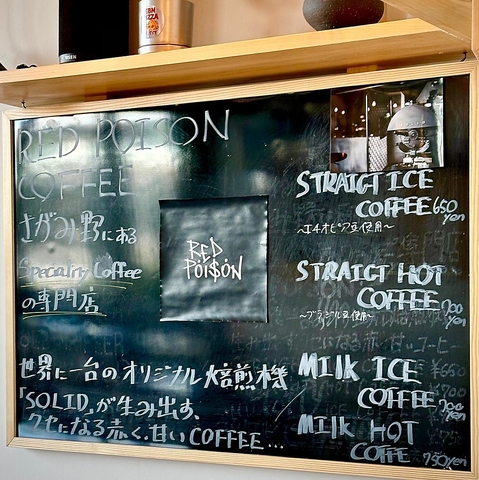 RED POISON
COFFEE
さがみ野にある
Speciality Coffee
の専門店
世界に一台のオリジナル焙煎機
「SOLID」が生み出す、
クセになる赤く、甘いCOFFEE...
RED
POI$ON
STRAIGT ICE
COFFEE 650
yen
〜エチオピア豆使用〜
STRAIGT HOT
COFFEE 700
yen
〜ブラジル豆使用〜
MILK ICE
COFFEE 700
yen
MILK HOT
COFFE 750yen